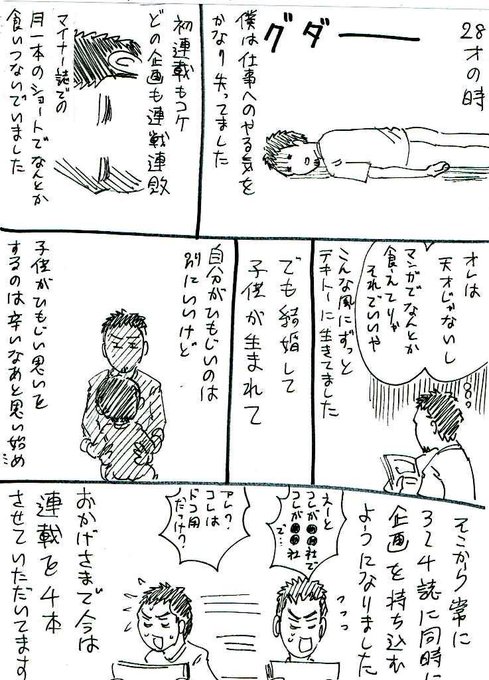 28
才の時
グダーーー
僕は仕事へのやる気を
かなり失ってました
初連載もコケ
どの企画も連戦連敗
マイナー誌での
月一本のショートでなんとか
食いつないでいました
オレは
天才じゃないし
マンガでなんとか
食えてりゃ
それでいいや
こんな風にずっと
テキトーに生きてました
でも結婚して
子供が生まれて
自分がひもじいのは
別にいいけど
子供がひもじい思いを
するのは辛いなあと思い始め
そこから常に
3〜4誌に同時に
企画を持ち込む
ようになりました
えーと
コレが●●社で
コレが●●社
で…
アレ?
コレは
ドコ用
だっけ?
おかげさまで今は
連載を4本
させていただいてます